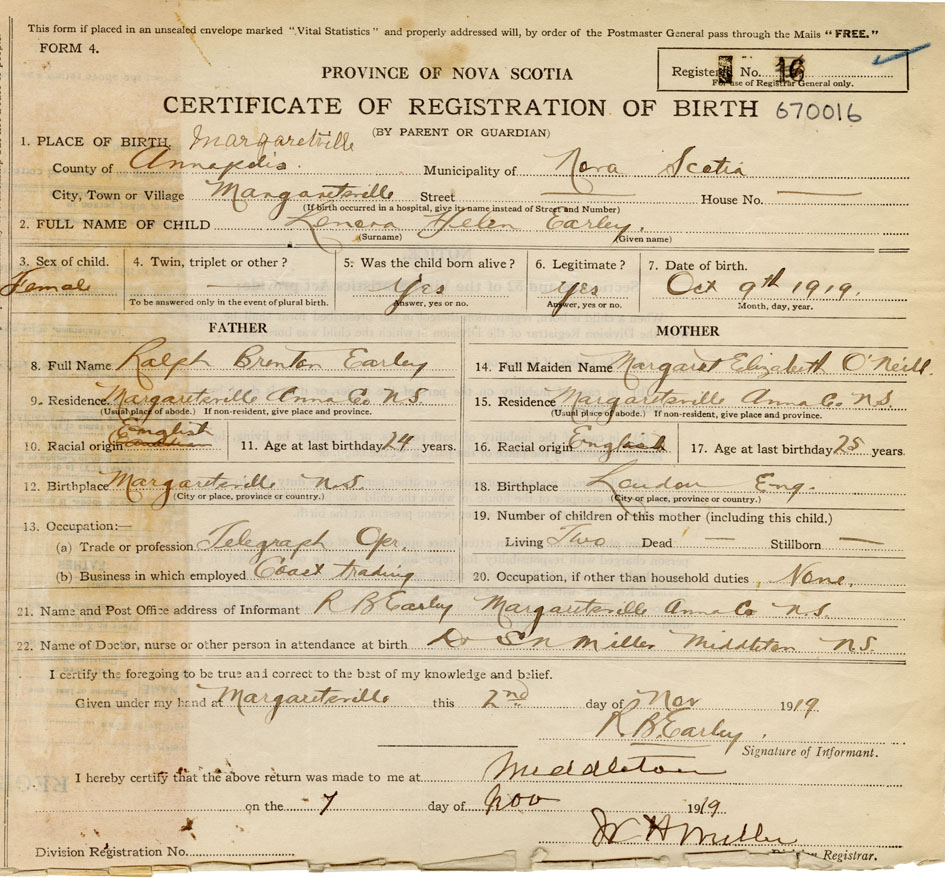 This form if placed in an unsealed envelope marked "Vital Statistics" and properly addressed will, by order of the Postmaster General pass through the Mails "FREE."
FORM 4.
Registered No. 16
For use of Registrar General only.
PROVINCE OF NOVA SCOTIA
CERTIFICATE OF REGISTRATION OF BIRTH 670016
(BY PARENT OR GUARDIAN)
1. PLACE OF BIRTH, Margaretville
County of Annapolis. Municipality of Nova Scotia
City, Town or Village Margaretsville Street House No.
(If birth occurred in a hospital, give its name instead of Street and Number)
2. FULL NAME OF CHILD Lenora Helen Earley.
(Surname) (Given name)
3. Sex of child. 4. Twin, triplet or other? 5. Was the child born alive? 6. Legitimate? 7. Date of birth.
Female — Yes Yes Oct 9th 1919.
To be answered only in the event of plural birth. Answer, yes or no. Answer, yes or no. Month, day, year.
FATHER MOTHER
8. Full Name Ralph Brenton Earley 14. Full Maiden Name Margaret Elizabeth O'Neill.
9. Residence Margaretsville Anna Co N.S. 15. Residence Margaretsville Anna Co N.S.
(Usual place of abode.) If non-resident, give place and province. (Usual place of abode.) If non-resident, give place and province.
10. Racial origin English 11. Age at last birthday 24 years. 16. Racial origin English 17. Age at last birthday 25 years.
12. Birthplace Margaretsville N.S. 18. Birthplace London Eng.
(City or place, province or country.) (City or place, province or country.)
13. Occupation:— 19. Number of children of this mother (including this child.)
(a) Trade or profession Telegraph Opr. Living Two Dead — Stillborn —
(b) Business in which employed Coast trading 20. Occupation, if other than household duties, None.
21. Name and Post Office address of Informant R B Earley Margaretsville Anna Co N.S.
22. Name of Doctor, nurse or other person in attendance at birth Dr S N Miller Middleton N.S.
I certify the foregoing to be true and correct to the best of my knowledge and belief.
Given under my hand at Margaretsville this 2nd day of Nov 1919
R B Earley.
Signature of Informant.
I hereby certify that the above return was made to me at Middleton
on the 7 day of Nov 1919.
Miller
Division Registration No. Division Registrar.